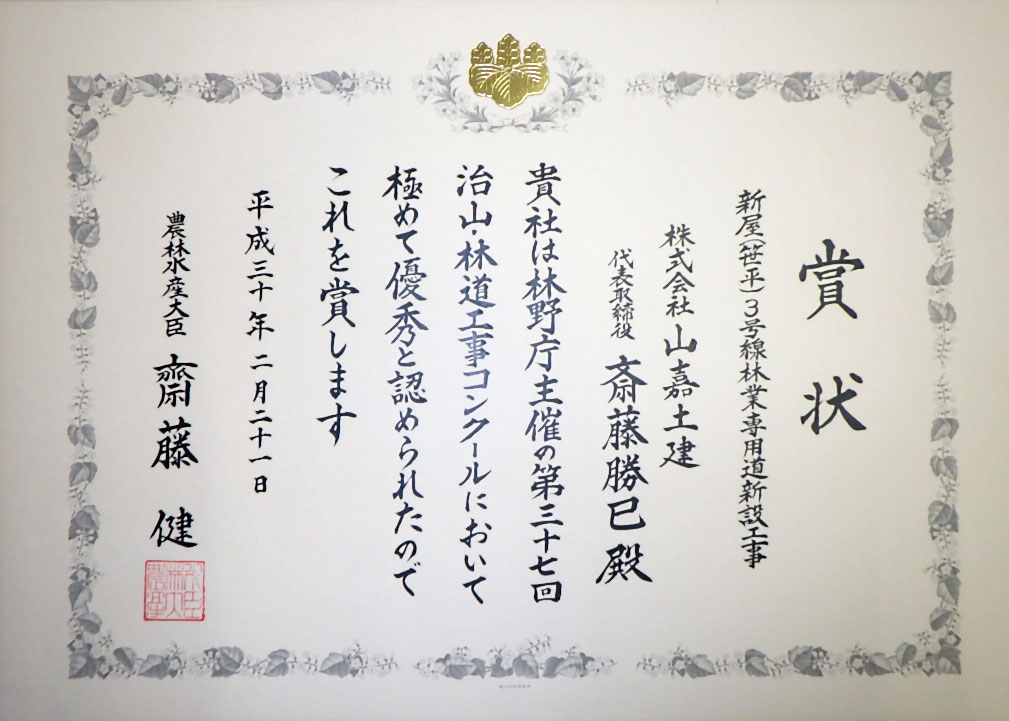 賞状
新屋(笹平)3号線林業専用道新設工事
株式会社 山嘉土建
代表取締役 斎藤勝巳殿
貴社は林野庁主催の第三十七回
治山・林道工事コンクールにおいて
極めて優秀と認められたので
これを賞します
平成三十年二月二十一日
農林水産大臣 齋藤 健